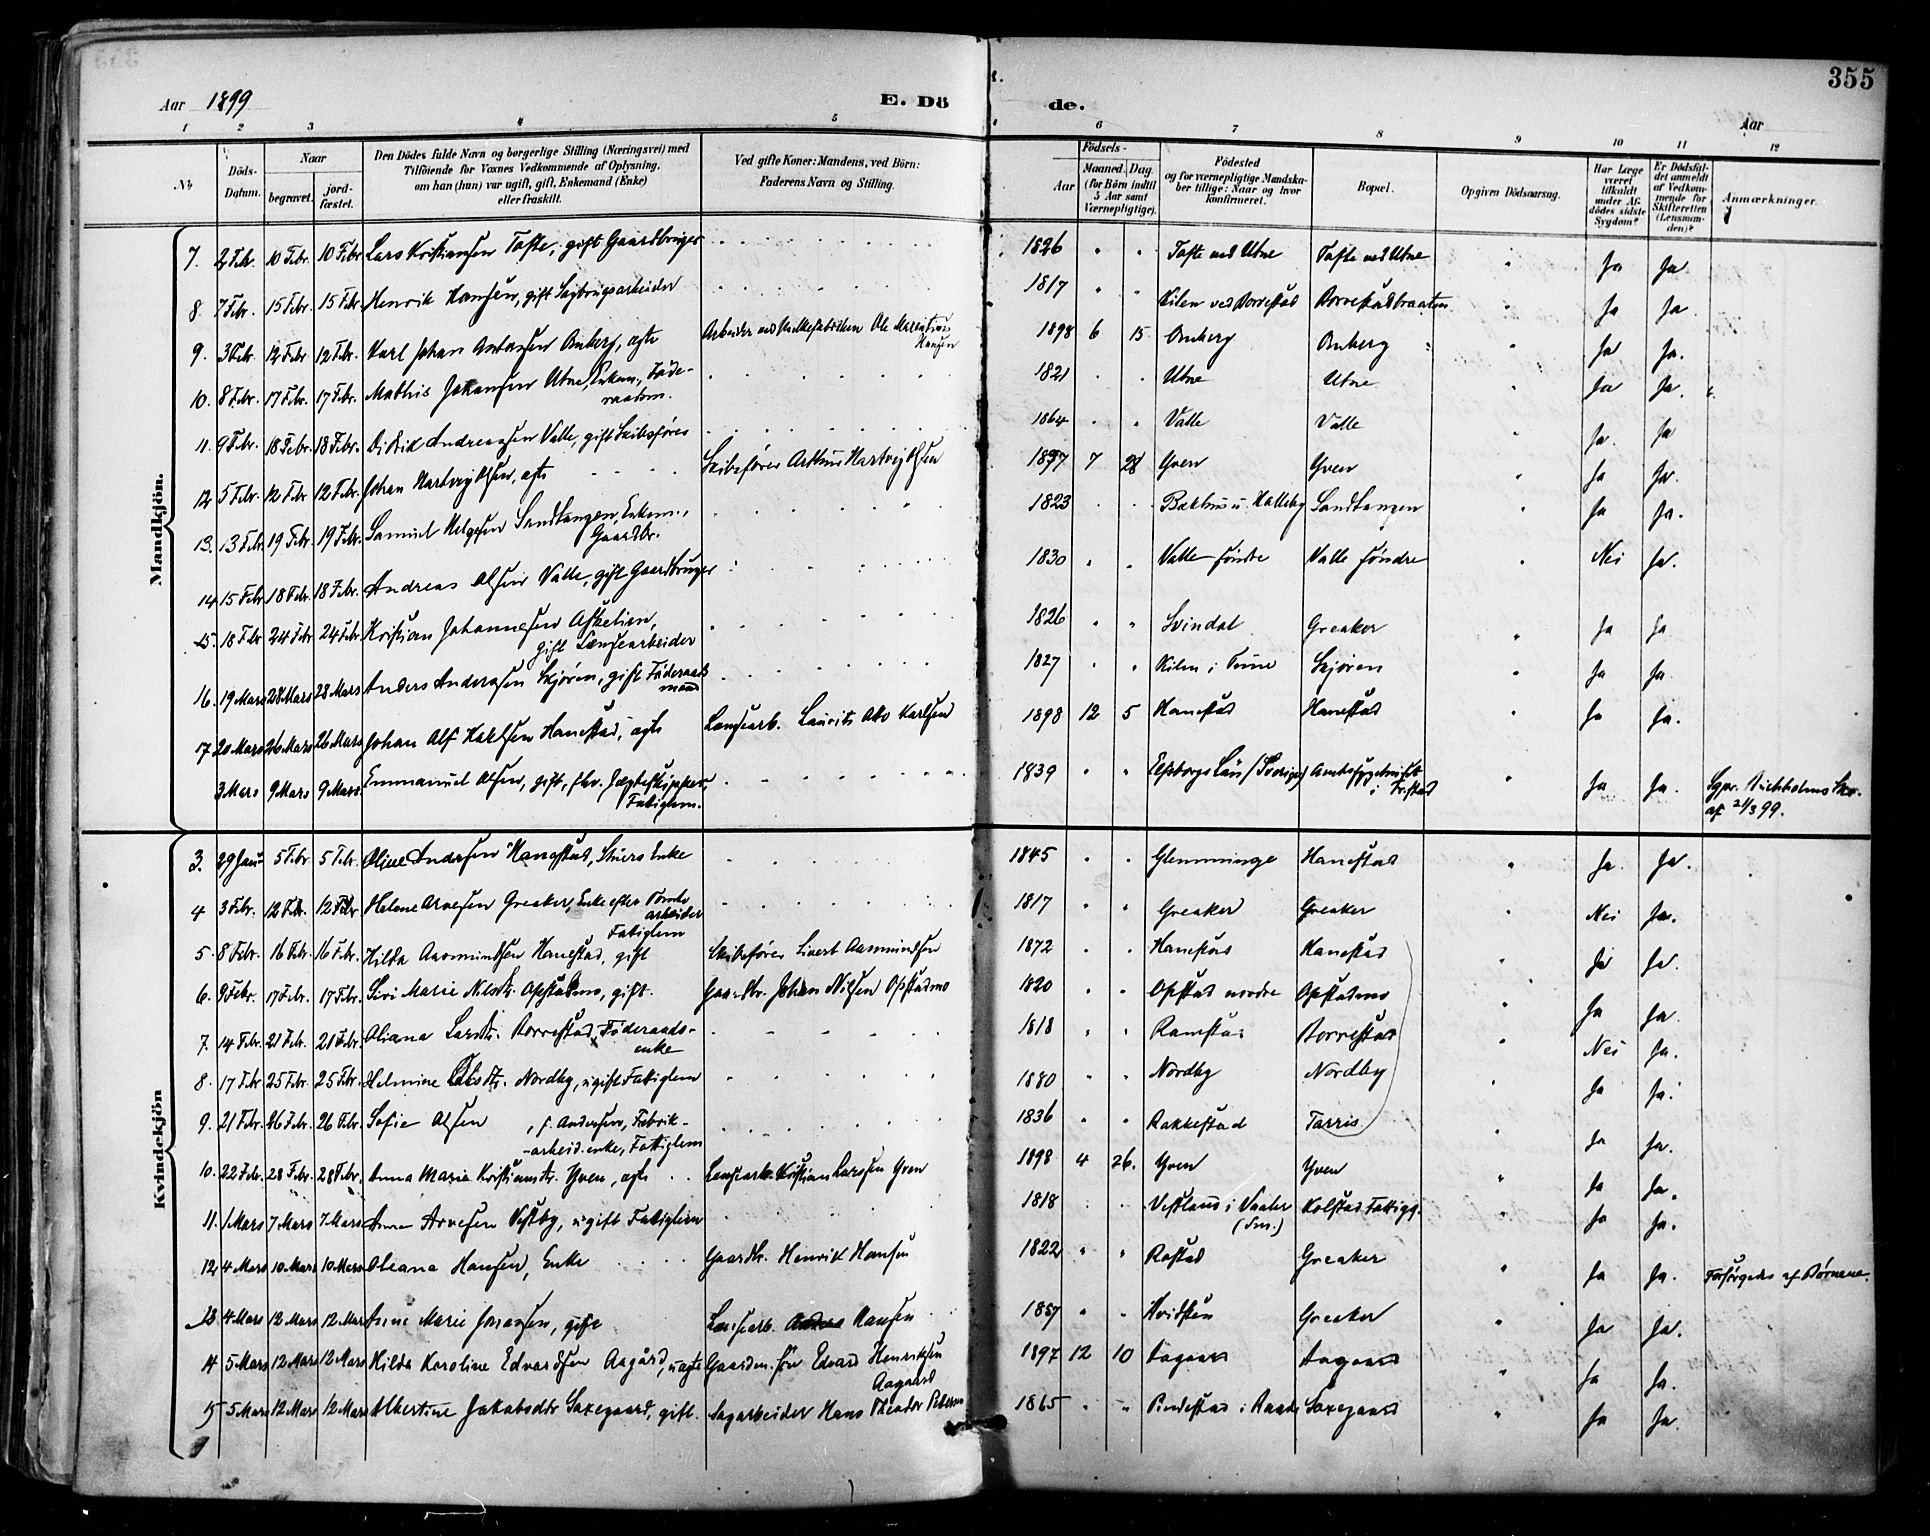 355
Aar 1899 E. Dö de. Aar
1 2 3 4 5 6 7 8 9 10 11 12
No Döds-Datum. Naar begravet. jord-fæstet. Den Dödes fulde Navn og borgerlige Stilling (Næringsvei) med Tilföiende for Voxnes Vedkommende af Oplysning, om han (hun) var ugift, gift, Enkemand (Enke) eller fraskilt. Ved gifte Koner: Mandens, ved Börn: Faderens Navn og Stilling. Födsels- Aar Maaned. Dag (for Börn indtil 5 Aar samt Værnepligtige). Födested og for værnepligtige Mandskaber tillige: Naar og hvor konfirmeret. Bopæl. Opgiven Dödsaarsag. Har Læge været tilkaldt under Afdödes sidste Sygdom? Er Dödsfaldet anmeldt af Vedkommende for Skifteretten (Lensmanden)? Anmærkninger.
Mandkjön.
7. 2 Febr. 10 Febr. 10 Febr Lars Kristiansen Tofte, gift Gaardbruger 1826 " " Tofte ved Utne Tofte ved Utne " Ja Ja.
8 7 Febr. 15 Febr. 15 Febr. Henrik Hansen, gift Sagbrugsarbeider 1817 " " Kilen ved Borrestad Borrestadbraaten " Ja Ja.
9. 3 Febr. 12 Febr 12 Febr. Karl Johan Antonsen Omberg, ægte Arbeider ved Ole Hansen 1898 6 15. Omberg Omberg " Ja Ja.
10. 8 Febr. 17 Febr. 17 Febr. Mathis Johansen Utne, Enkem., Föde-
raadsm. 1821 Utne Utne " Ja Ja.
11. 9 Febr. 18 Febr. 18 Febr. Didrik Andreassen Valle, gift Skibsförer 1864 Valle Valle " Ja. Ja
12 5 Febr. 12 Febr 12 Febr. Johan Hartvigksen, ægte Skibsförer Arthur Hartvigksen 1897 7 28 Yven Yven " Ja Ja.
13. 13 Febr. 19 Febr. 19 Febr. Samuel Helgesen Sandtangen, Enkem.,
Gaardbr. 1823 Bakhus u. Halleby Sandtangen " Ja Ja.
14 15 Febr 18 Febr. 18 Febr. Andreas Olsen Valle, gift Gaardbruger 1830 " " Valle söndre Valle söndre " Nei Ja.
15. 18 Febr 24 Febr 24 Febr. Kristian Johannesen Askelien,
gift Lænsearbeider 1826 " " Svindal Greaker " Ja Ja
16. 19 Mars 28 Mars 28 Mars Anders Andersen Skjören, gift Föderaads
mand 1827 " " Kilen i Tune Skjören " Ja Ja.
17 20 Mars 26 Mars 26 Mars Johan Alf Karlsen Hanestad, ægte Lensearb. Laurits Otto Karlsen 1898 12 5 Hanestad Hanestad " Ja Ja.
3 Mars 9 Mars 9 Mars. Emmanuel Olsen, gift, fhv. Jægteskipper,
Fattiglem. 1839 " " Elfsborgs Län (Sverige) Amtssygehuset
i Fr.stad " Ja Ja. Sgpr.
af 21/3 99.
Kvindekjön
3. 29 Jan. 5 Febr 5 Febr. Oline Andersen Hanestad, Enke 1845 " " Glemminge Hanestad " Ja. Ja.
4 3 Febr. 12 Febr. 12 Febr Helene Arnesen Greaker, Enke efter Tomte
arbeider
Fattiglem 1817 " " Greaker Greaker " Nei Ja.
5 8 Febr. 16 Febr. 16 Febr. Hilda Aasmundsen Hanestad, gift Skibsförer Sivert Aasmundsen 1872 " " Hanestad Hanestad " Ja Ja.
6. 9 Febr. 17 Febr. 17 Febr. Siri Marie Nilsdtr. Opstadmo, gift. Gaardbr. Johan Nilsen Opstadmo 1820 " " Opstad nordre Opstadmo " Ja Ja.
7. 14 Febr. 21 Febr. 21 Febr. Oliana Larsdtr. Borrestad, Föderaads-
enke 1818 " " Ramstad Borrestad " Nei Ja.
8 17 Febr 25 Febr. 25 Febr. Helmine Nordby, ugift Fattiglem 1880 " " Nordby Nordby " Ja Ja.
9. 21 Febr. 26 Febr. 26 Febr. Sofie Olsen, f. Andersen, Fabrik-
-arbeid.enke, Fattiglem 1836 " " Rakkestad Tarris " Ja Ja.
10. 22 Febr. 28 Febr. 28 Febr. Anna Marie Kristiansdtr. Yven, ægte Lensearb. Kristian Larssen Yven 1898 4 26. Yven Yven " Ja Ja.
11. 1 Mars 7 Mars 7 Mars Anne Arnesen Vestby, ugift Fattiglem 1818 Vestland i Vaaler
(Sm.) Kolstad Fattigg. " Ja Ja.
12 4 Mars 10 Mars 10 Mars Oleana Hansen, Enke Gaardbr. Henrik Hansen 1822 " " Rostad Greaker " Ja Ja. Forsörgedes af Börnene.
13 4 Mars 12 Mars 12 Mars Anne Marie Johansen, gift Lensearb. Hansen 1857 " " Hvidsten Greaker Ja Ja.
14 5 Mars 12 Mars 12 Mars Hilda Karoline Edvardsen Aagård, uægte Gaardm. sön Edvard Henriksen
Aagaard 1897 12 10 Aagaard Aagaard " Ja Ja.
15 5 Mars 12 Mars 12 Mars Albertine Jakobsdtr Saxegaard, gift. Sagarbeider Hans Theodor Petersen 1865 " " Bindestad i Raade Saxegaard " Ja Ja